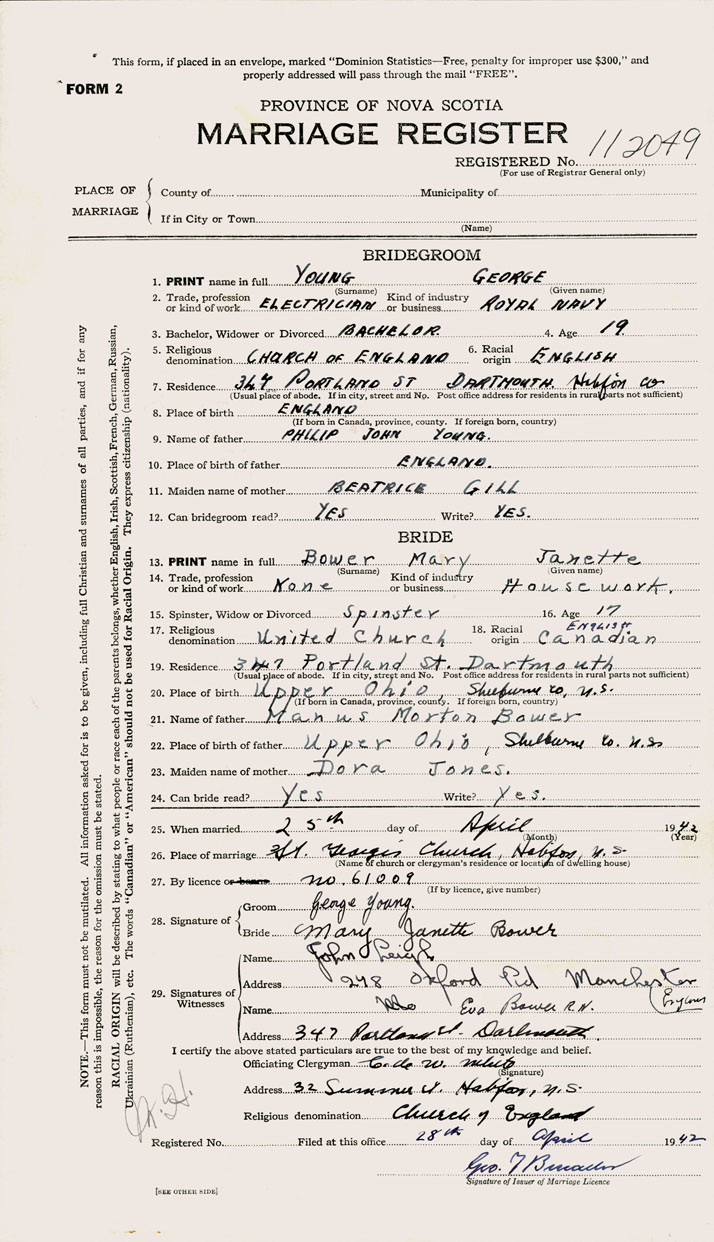 This form, if placed in an envelope, marked "Dominion Statistics—Free, penalty for improper use $300," and
properly addressed will pass through the mail "FREE".
FORM 2
PROVINCE OF NOVA SCOTIA
MARRIAGE REGISTER
REGISTERED No. 112049
(For use of Registrar General only)
PLACE OF MARRIAGE
County of Municipality of
If in City or Town
(Name)
BRIDEGROOM
1. PRINT name in full YOUNG GEORGE
(Surname) (Given name)
2. Trade, profession or kind of work ELECTRICIAN Kind of industry or business ROYAL NAVY
3. Bachelor, Widower or Divorced BACHELOR 4. Age 19
5. Religious denomination CHURCH OF ENGLAND 6. Racial origin ENGLISH
7. Residence 347 PORTLAND ST DARTMOUTH Halifax Co
(Usual place of abode. If in city, street and No. Post office address for residents in rural parts not sufficient)
8. Place of birth ENGLAND
(If born in Canada, province, county. If foreign born, country)
9. Name of father PHILIP JOHN YOUNG.
10. Place of birth of father ENGLAND.
11. Maiden name of mother BEATRICE GILL
12. Can bridegroom read? YES Write? YES.
BRIDE
13. PRINT name in full Bower Mary Janette
(Surname) (Given name)
14. Trade, profession or kind of work None Kind of industry or business Housework.
15. Spinster, Widow or Divorced Spinster 16. Age 17
17. Religious denomination United Church 18. Racial origin ENGLISH Canadian
19. Residence 347 Portland St. Dartmouth
(Usual place of abode. If in city, street and No. Post office address for residents in rural parts not sufficient)
20. Place of birth Upper Ohio, Shelburne Co, N.S.
(If born in Canada, province, county. If foreign born, country)
21. Name of father Manus Morton Bower
22. Place of birth of father Upper Ohio, Shelburne Co. N.S.
23. Maiden name of mother Dora Jones.
24. Can bride read? Yes Write? Yes.
25. When married 25th day of April 1942
(Month) (Year)
26. Place of marriage St. George's Church, Halifax, N.S.
(Name of church or clergyman's residence or location of dwelling house)
27. By licence or banns no. 61009
(If by licence, give number)
28. Signature of
Groom George Young.
Bride Mary Janette Bower
29. Signatures of Witnesses
Name John Leigh
Address 298 Oxford Rd Manchester
(England
Name Eva Bower R.N.
Address 347 Portland St. Dartmouth.
I certify the above stated particulars are true to the best of my knowledge and belief.
Officiating Clergyman C. de W. White
(Signature)
Address 32 Summer St. Halifax, N.S.
Religious denomination Church of England
Registered No. Filed at this office 28th day of April 1942
Geo. T
Signature of Issuer of Marriage Licence
[SEE OTHER SIDE]
NOTE.—This form must not be mutilated. All information asked for is to be given, including full Christian and surnames of all parties, and if for any
reason this is impossible, the reason for the omission must be stated.
RACIAL ORIGIN will be described by stating to what people or race each of the parents belongs, whether English, Irish, Scottish, French, German, Russian,
Ukrainian (Ruthenian), etc. The words "Canadian" or "American" should not be used for Racial Origin. They express citizenship (nationality).